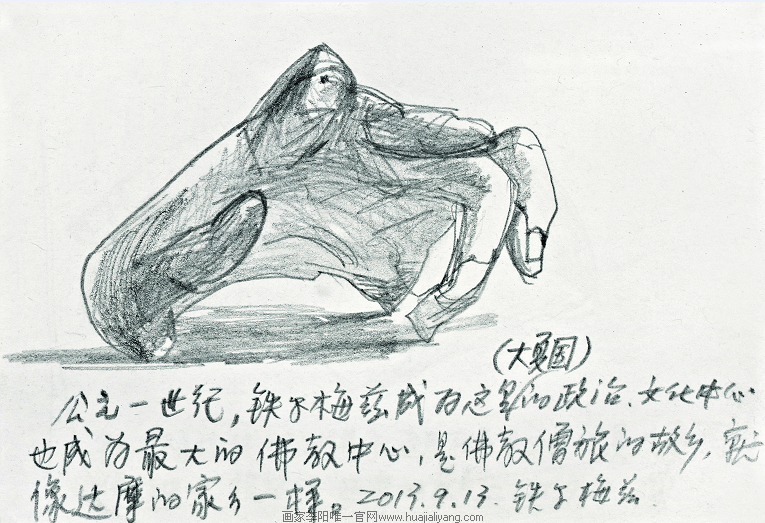 (大夏国)
公元一世纪,铁尔梅兹成为这里的政治、文化中心
也成为最大的佛教中心,是佛教僧旅的故乡,就
像达摩的家乡一样。2013.9.13.铁尔梅兹.
画家李阳唯一官网www.huajialiyang.com